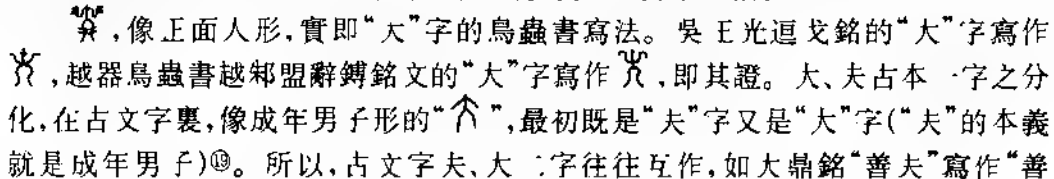 ,像正面人形,實即“大”字的鳥蟲書寫法。吳王光逗戈銘的“大”字寫作
,越器鳥蟲書越邾盟辭鎛銘文的“大”字寫作 ,即其證。大、夫古本一字之分
化,在古文字裏,像成年男子形的“ ”,最初既是“夫”字又是“大”字(“夫”的本義
就是成年男子)⑲。所以,古文字夫、大二字往往互作,如大鼎銘“善夫”寫作“善